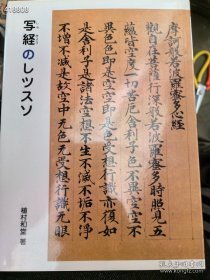 写経のレッスン
植村和堂 著
摩訶般若波羅蜜多心経
觀自在菩薩行深般若波羅蜜多時照見五
蘊皆空度一切苦厄舍利子色不異空空不
異色色即是空空即是色受想行識亦復如
是舍利子是諸法空想不生不滅不垢不淨
不增不減是故空中无色无受想行識无